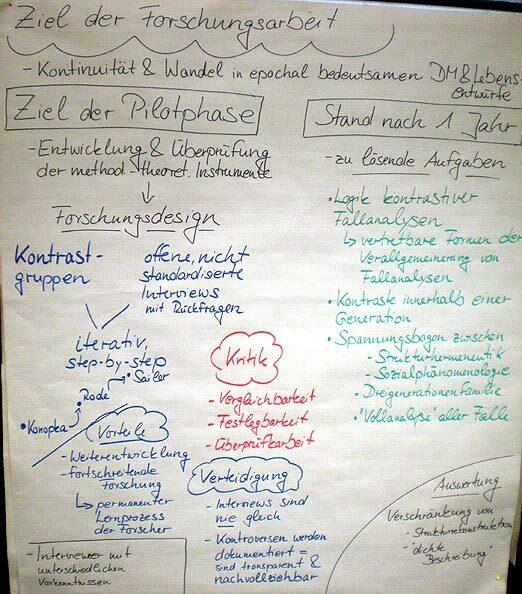 Ziel der Forschungsarbeit
- Kontinuität & Wandel in epochal bedeutsamen DM & Lebens
entwürfe
Ziel der Pilotphase
- Entwicklung & Überprüfung
der method.-theoret. Instrumente
Forschungsdesign
Kontrast-
gruppen
offene, nicht
standardiserte
Interviews
mit Rückfragen
iterativ,
step-by-step
• Sailer
Rode
• Konopka
Vorteile
- Weiterentwicklung
- fortschreitende
Forschung
↳ permanenter
Lernprozess
der Forscher
- Interviewer mit
unterschiedlichen
Vorkenntnissen
Kritik
- Vergleichbarkeit
- Festlegbarkeit
- Überprüfbarkeit
Verteidigung
- Interviews sind
nie gleich
- Kontroversen werden
dokumentiert =
sind transparent &
nachvollziehbar
Stand nach 1 Jahr
- zu lösende Aufgaben
• Logik kontrastiver
Fallanalysen
↳ vertretbare Formen der
Verallgemeinerung von
Fallanalysen
• Kontraste innerhalb einer
Generation
• Spannungsbogen zwischen
- Strukturhermeneutik
- Sozialphänomenologie
• Dreigenerationenfamilie
• "Vollanalyse" aller Fälle
Auswertung
Verschränkung von
- Strukturrekonstruktion
- "dichte
Beschreibung"